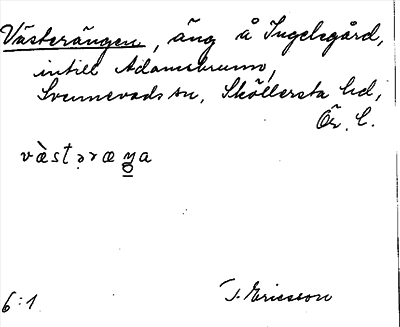 Västerängen, äng å Ingelsgård,
intill Adamsbrunn,
Svennevads sn, Sköllersta hd,
Ör. l.
vàstəræŋa
6:1 T. Ericsson